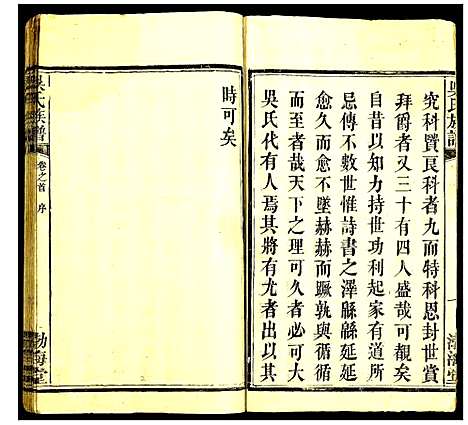 吳氏族譜
渤海堂
究科置良科者九而特科恩封世賞
拜爵者又三十有四人盛哉可覩矣
自昔以知力持世功利起家有道所
忌傳不數世惟詩書之澤緜緜延延
愈久而愈不墜赫赫而蹶孰與循循
而至者哉天下之理可久者必可大
吳氏代有人焉其將有光於世出其
時可矣
吳氏族譜
卷之首
序
渤海堂